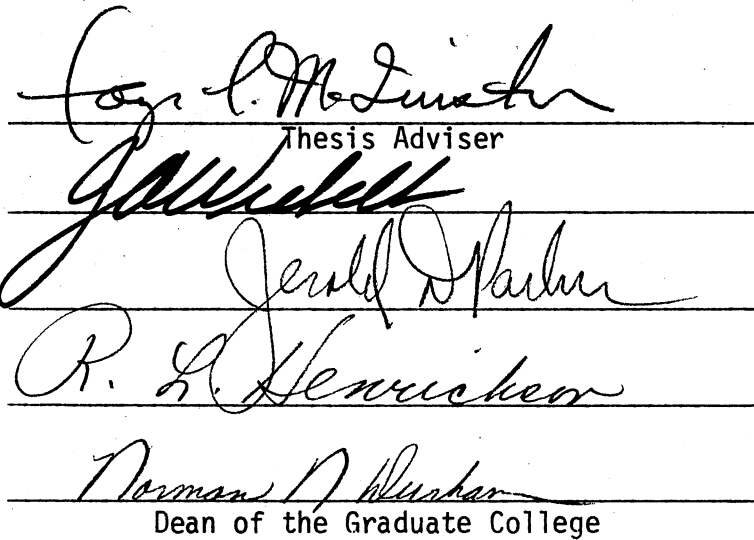 Faye C. McQuiston
Thesis Adviser
J A Wiebelt
Jerald D Parker
R. L. Henrickson
Norman N Durham
Dean of the Graduate College